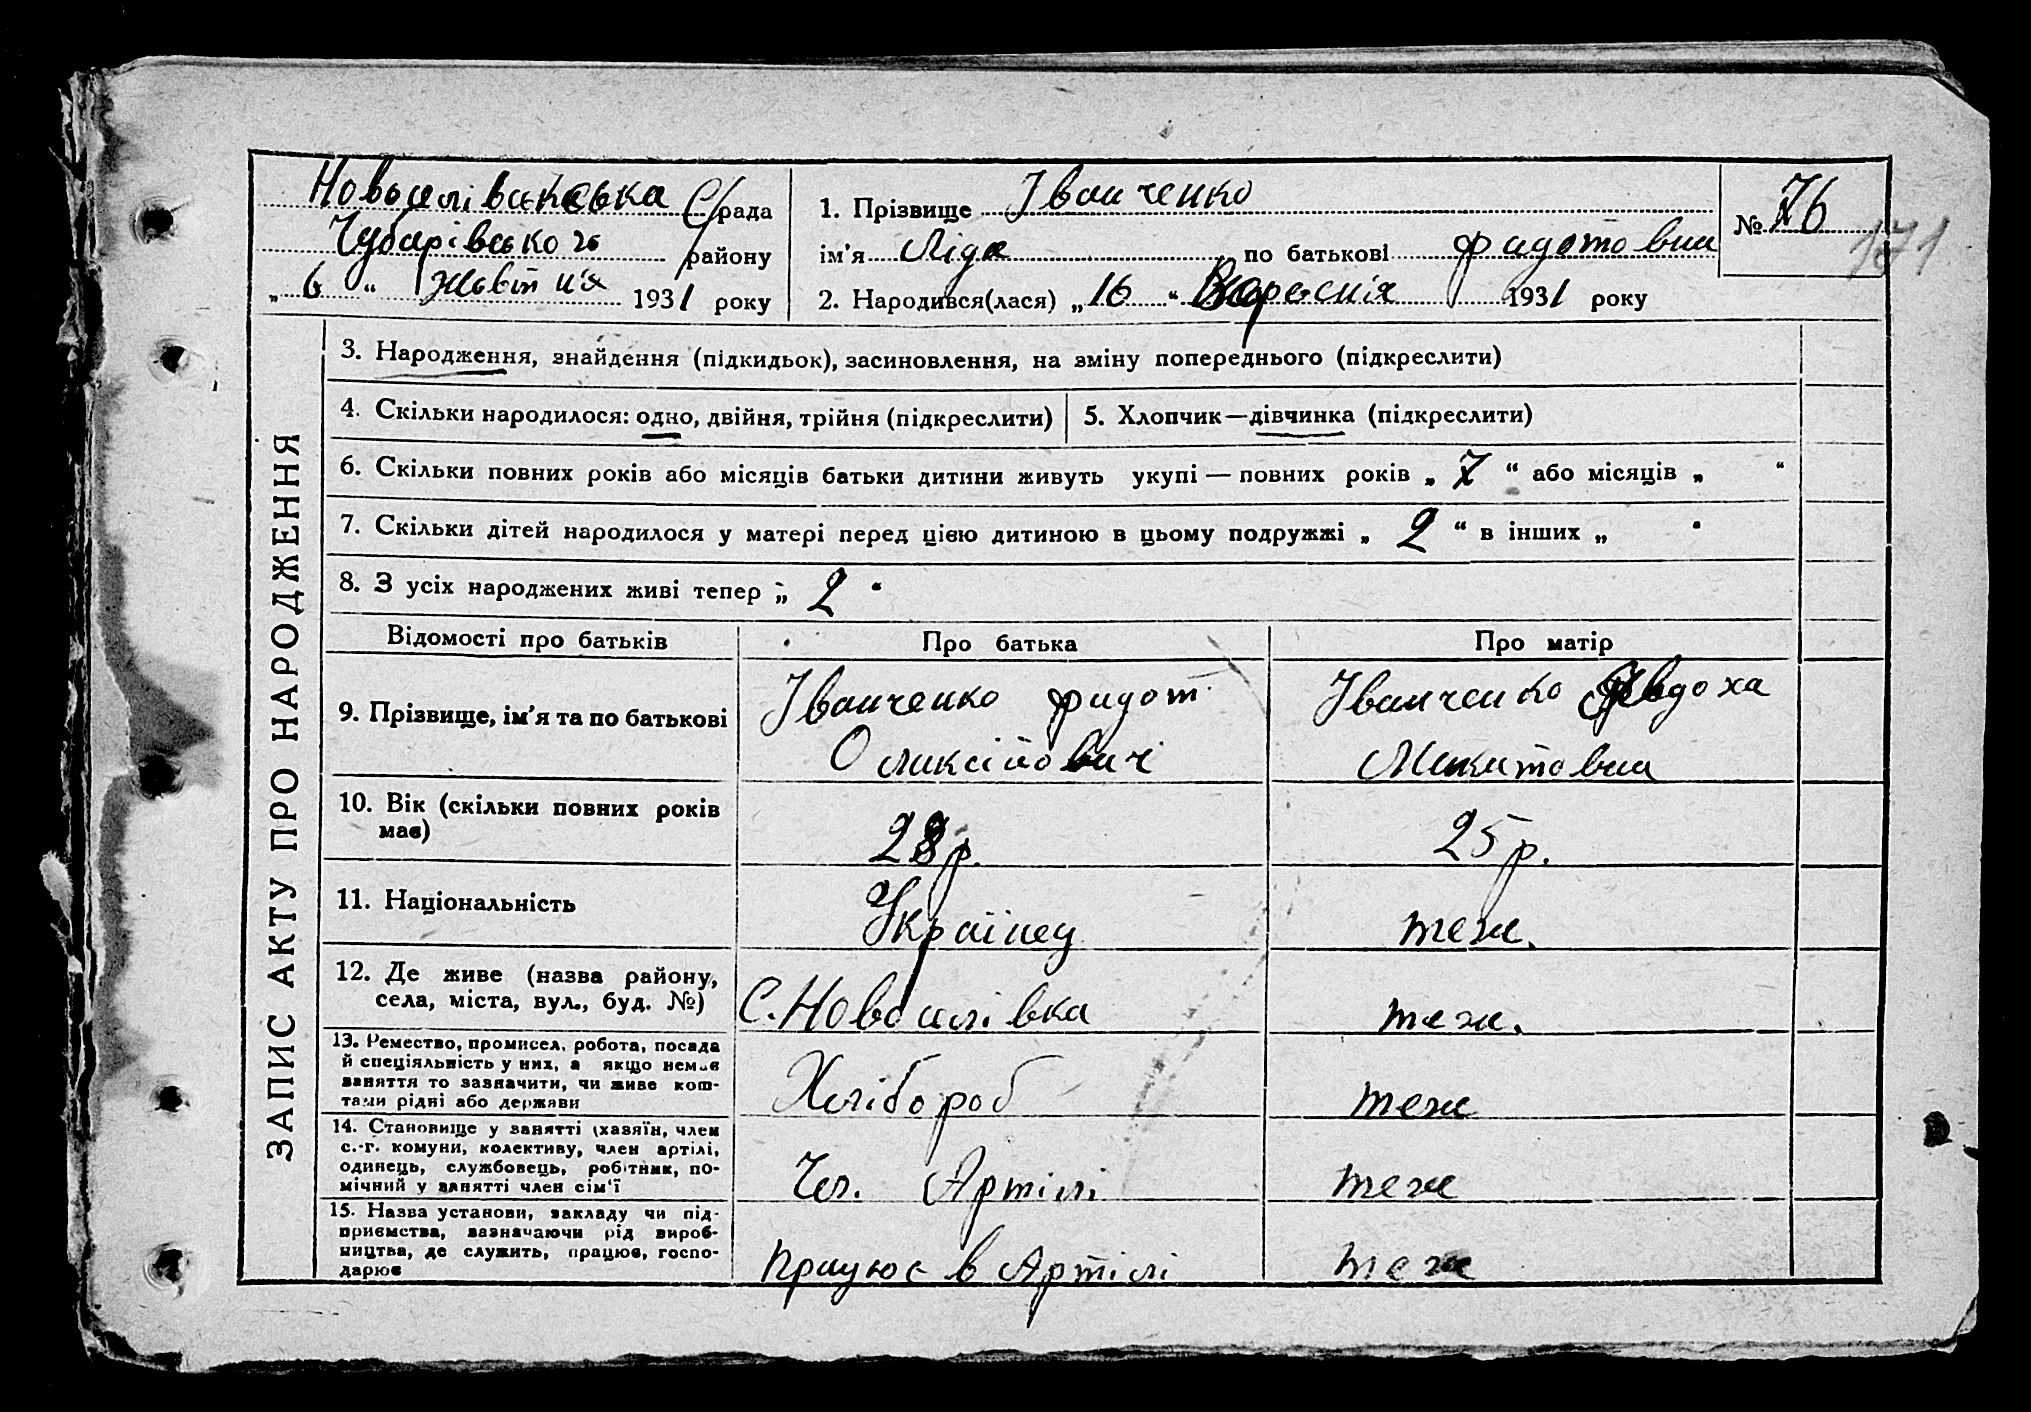 Новоселівська С/рада
Чубарівсько го району
„ 6 “ Жовтн'я 1931 року
1. Прізвище Іванченко
ім'я Ліда по батькові Федотовна
2. Народився(лася) „ 16 “ Вересн'я 1931 року
№ 76
171
ЗАПИС АКТУ ПРО НАРОДЖЕННЯ
3. Народження, знайдення (підкидьок), засиновлення, на зміну попереднього (підкреслити)
4. Скільки народилося: одно, двійня, трійня (підкреслити)
5. Хлопчик—дівчинка (підкреслити)
6. Скільки повних років або місяців батьки дитини живуть укупі — повних років „ 7 “ або місяців „ “
7. Скільки дітей народилося у матері перед цією дитиною в цьому подружжі „ 2 “ в інших „ “
8. З усіх народжених живі тепер „ 2 “
Відомості про батьків
Про батька
Про матір
9. Прізвище, ім'я та по батькові
Іванченко Федот
Олексійович
Іванченко Явдоха
Микитовна
10. Вік (скільки повних років
має)
28 р.
25 р.
11. Національність
Українец
теж.
12. Де живе (назва району,
села, міста, вул., буд. №)
С. Новоселівка
теж.
13. Ремество, промисел, робота, посада
й спеціяльність у них, а якщо немає
заняття то зазначити, чи живе кош-
тами рідні або держави
Хлібороб
теж
14. Становище у занятті (хазяїн, член
с.-г. комуни, колективу, член артілі,
одинець, службовець, робітник, по-
мічний у занятті член сім'ї
Чл. Артілі
теж
15. Назва установи, закладу чи під-
приємства, зазначаючи рід вироб-
ництва, де служить, працює, госпо-
дарює
працює в Артілі
теж